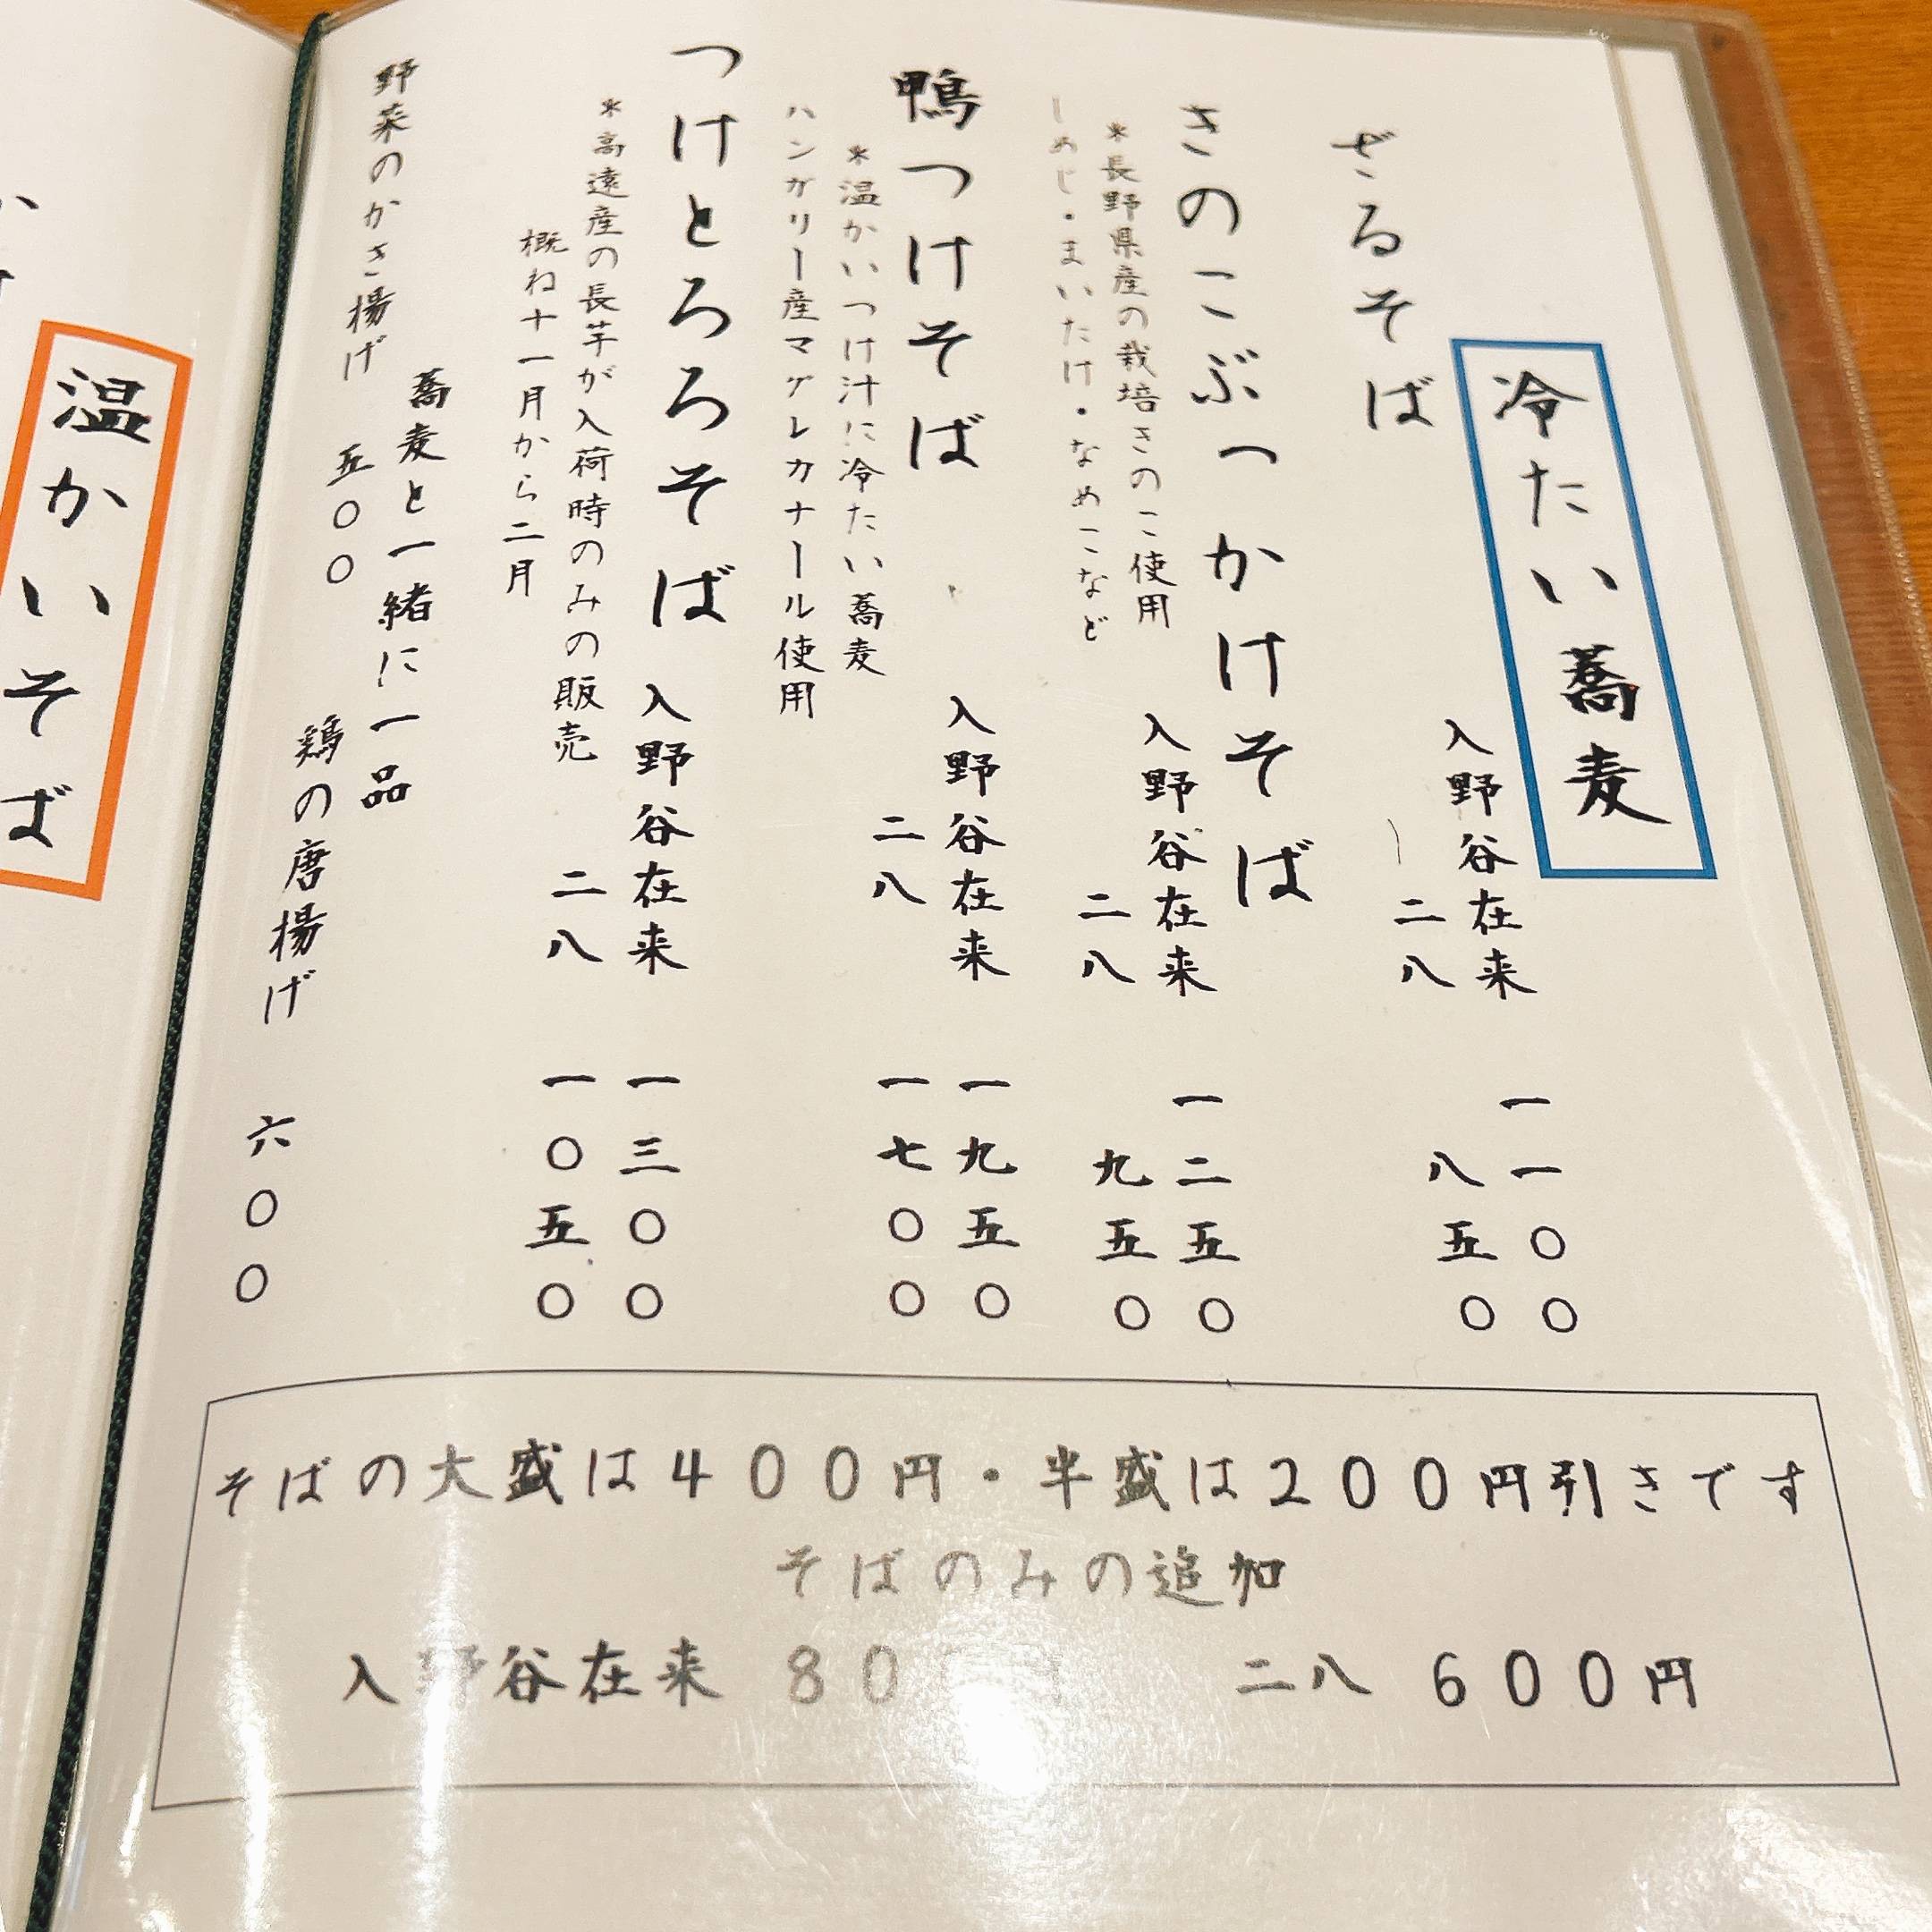 冷たい蕎麦
ざるそば
入野谷在来 一一〇〇
二八 八五〇
きのこぶっかけそば
入野谷在来 一二五〇
二八 九五〇
＊長野県産の栽培きのこ使用
しめじ・まいたけ・なめこなど
鴨つけそば
入野谷在来 一九五〇
二八 一七〇〇
＊温かいつけ汁に冷たい蕎麦
ハンガリー産マグレカナール使用
つけとろろそば
入野谷在来 一三〇〇
二八 一〇五〇
＊高遠産の長芋が入荷時のみの販売
概ね十一月から二月
蕎麦と一緒に一品
野菜のかき揚げ 五〇〇
鶏の唐揚げ 六〇〇
そばの大盛は400円・半盛は200円引きです
そばのみの追加
入野谷在来 80
二八 600円
温かいそば